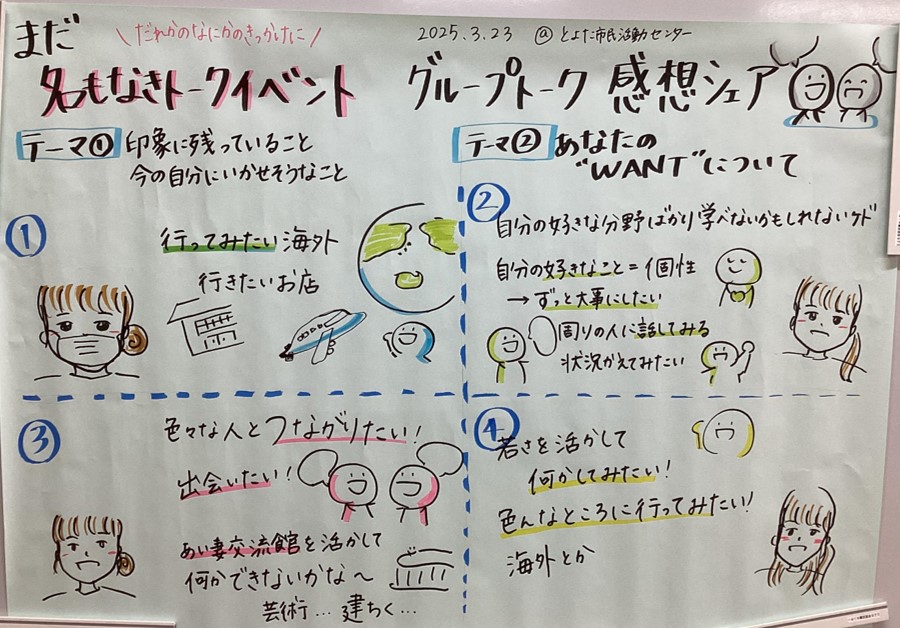 まだ
\だれかのなにかのきっかけに/
2025.3.23 @とよた市民活動センター
名もなきトークイベント グループトーク 感想シェア
テーマ① 印象に残っていること
今の自分にいかせそうなこと
テーマ② あなたの
"WANT"について
①
行ってみたい海外
行きたいお店
②
自分の好きな分野ばかり学べないかもしれないケド
自分の好きなこと=個性
→ずっと大事にしたい
周りの人に話してみる
状況かえてみたい
③
色々な人とつながりたい!
出会いたい!
あい妻交流館を活かして
何かできないかな〜
芸術…建ちく…
④
若さを活かして
何かしてみたい!
色んなところに行ってみたい!
海外とか